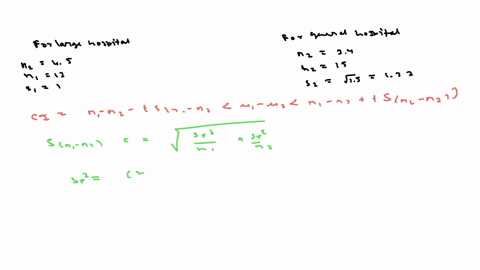 For large hospital
n₂ = 4.5
n₁ = 13
s₁ = 1
For general hospital
n₂ = 3.4
n₂ = 15
s₂ = √1.5 = 1.22
CI = n₁-n₂ - t S(n₁-n₂ < μ₁-μ₂ < n₁-n₂ + t S(n₂-n₂)
S(n₁-n₂) = = √(Sp²/n₁ + Sp²/n₂)
Sp² = (